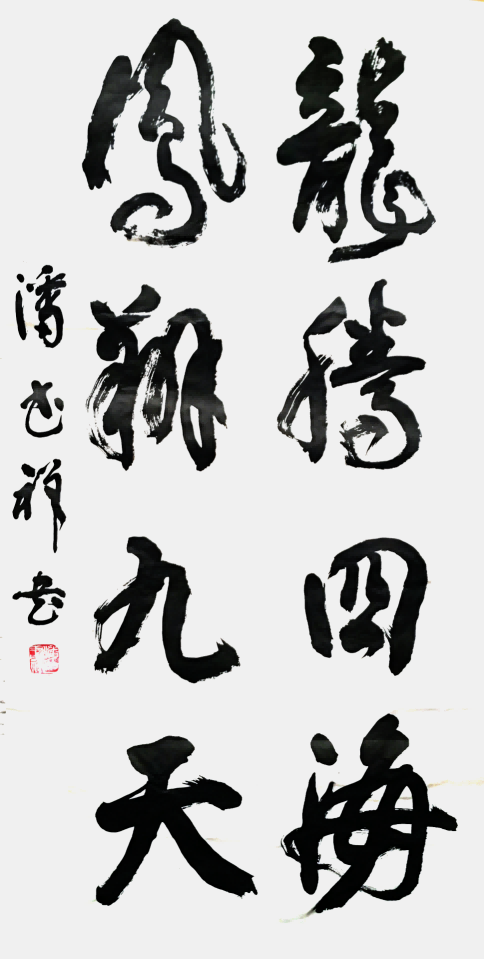 龍騰四海
鳳翔九天
潘志祥書